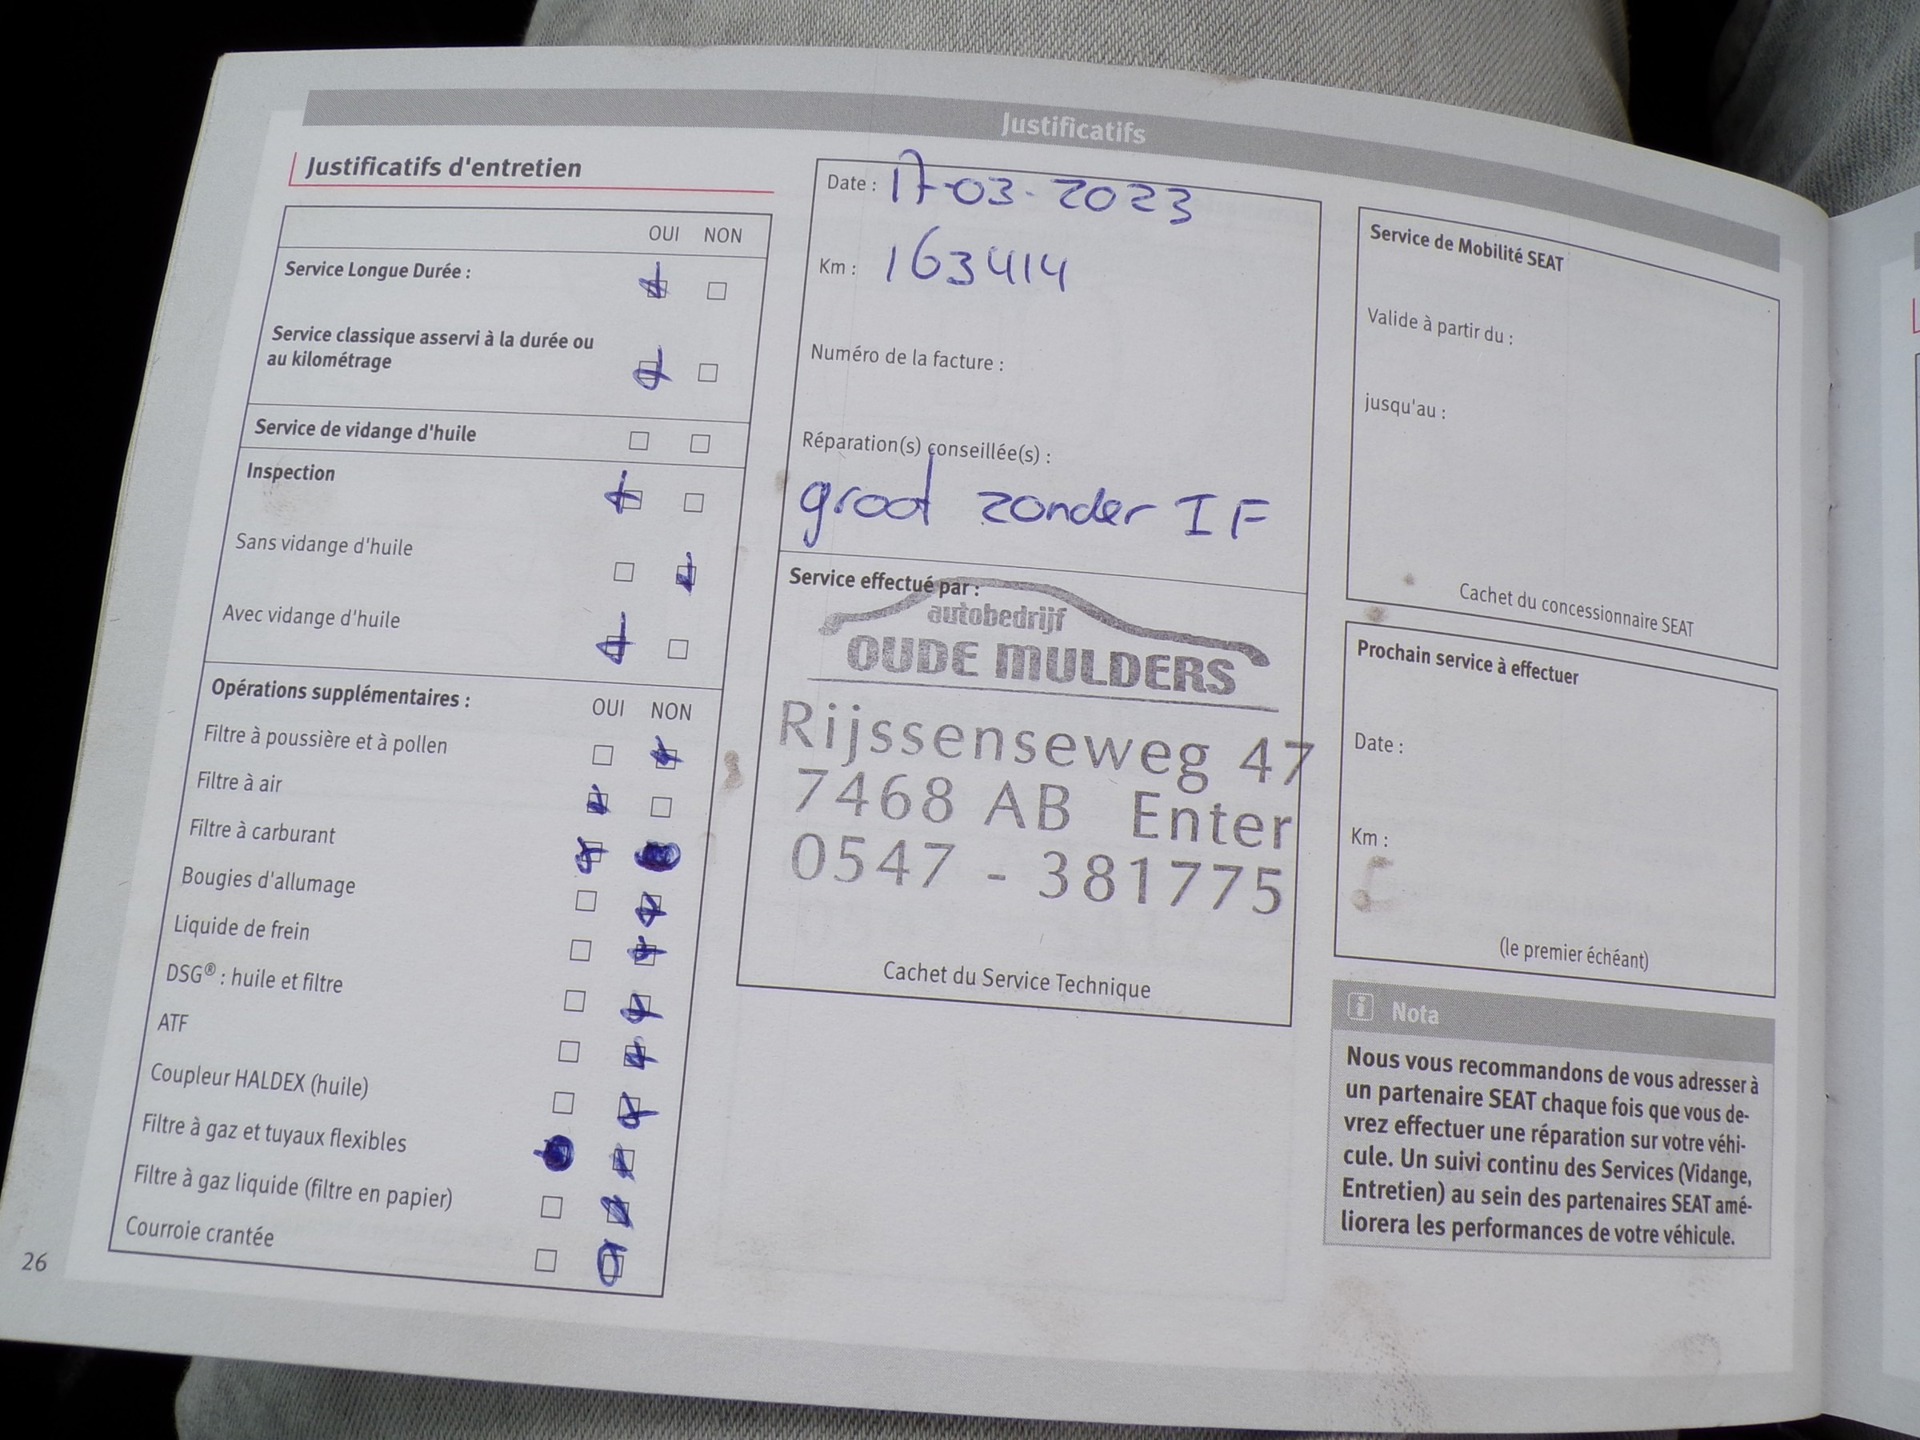 Justificatifs
Justificatifs d'entretien
OUI NON
Service Longue Durée :
Service classique asservi à la durée ou
au kilométrage
Service de vidange d'huile
Inspection
Sans vidange d'huile
Avec vidange d'huile
Opérations supplémentaires :
OUI NON
Filtre à poussière et à pollen
Filtre à air
Filtre à carburant
Bougies d'allumage
Liquide de frein
DSG® : huile et filtre
ATF
Coupleur HALDEX (huile)
Filtre à gaz et tuyaux flexibles
Filtre à gaz liquide (filtre en papier)
Courroie crantée
26
Date : 17-03-2023
Km : 163414
Numéro de la facture :
Réparation(s) conseillée(s) :
groot zonder IF
Service effectué par :
autobedrijf
OUDE MULDERS
Rijssenseweg 47
7468 AB Enter
0547 - 381775
Cachet du Service Technique
Service de Mobilité SEAT
Valide à partir du :
jusqu'au :
Cachet du concessionnaire SEAT
Prochain service à effectuer
Date :
Km :
(le premier échéant)
i Nota
Nous vous recommandons de vous adresser à
un partenaire SEAT chaque fois que vous de-
vrez effectuer une réparation sur votre véhi-
cule. Un suivi continu des Services (Vidange,
Entretien) au sein des partenaires SEAT amé-
liorera les performances de votre véhicule.